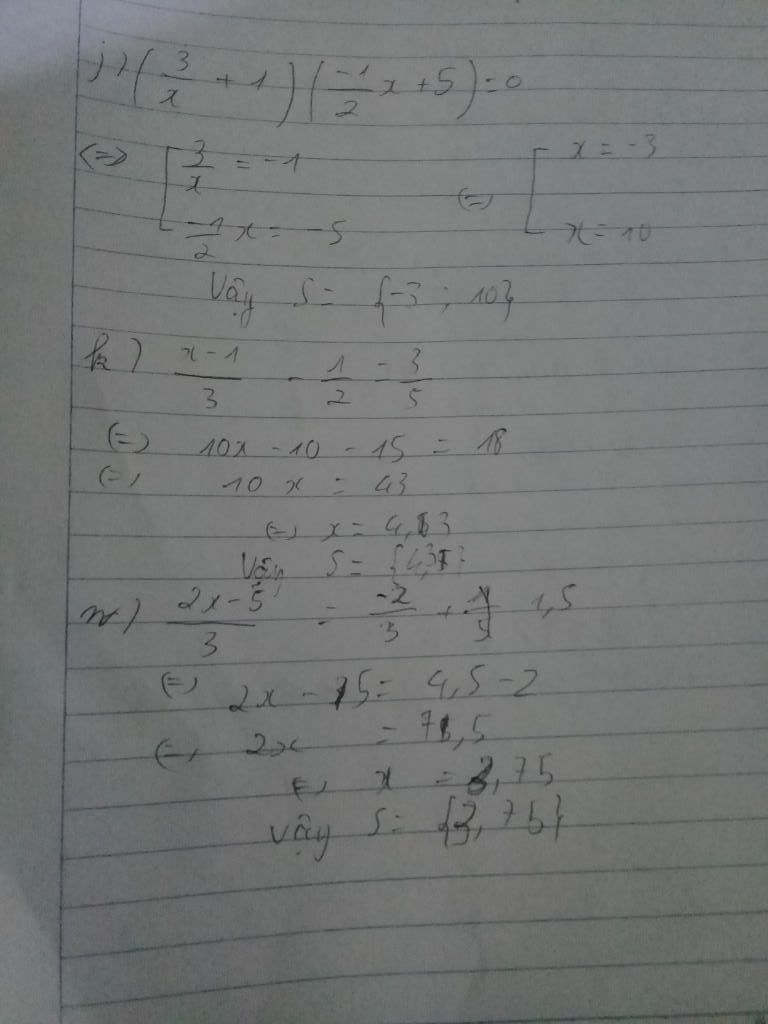 j) (3/x + 1)(-1/2 x + 5) = 0
<=> [ 3/x = -1 <=> [ x = -3
-1/2 x = -5 x = 10
Vậy S = {-3 ; 10}
k) x-1/3 - 1/2 = 3/5
<=> 10x - 10 - 15 = 18
<=> 10x = 43
<=> x = 4,3
Vậy S = {4,3}
2x-5/3 = -2/3 + 1,5
<=> 2x - 5 = 4,5 - 2
<=> 2x = 7,5
<=> x = 3,75
Vậy S = {3,75}